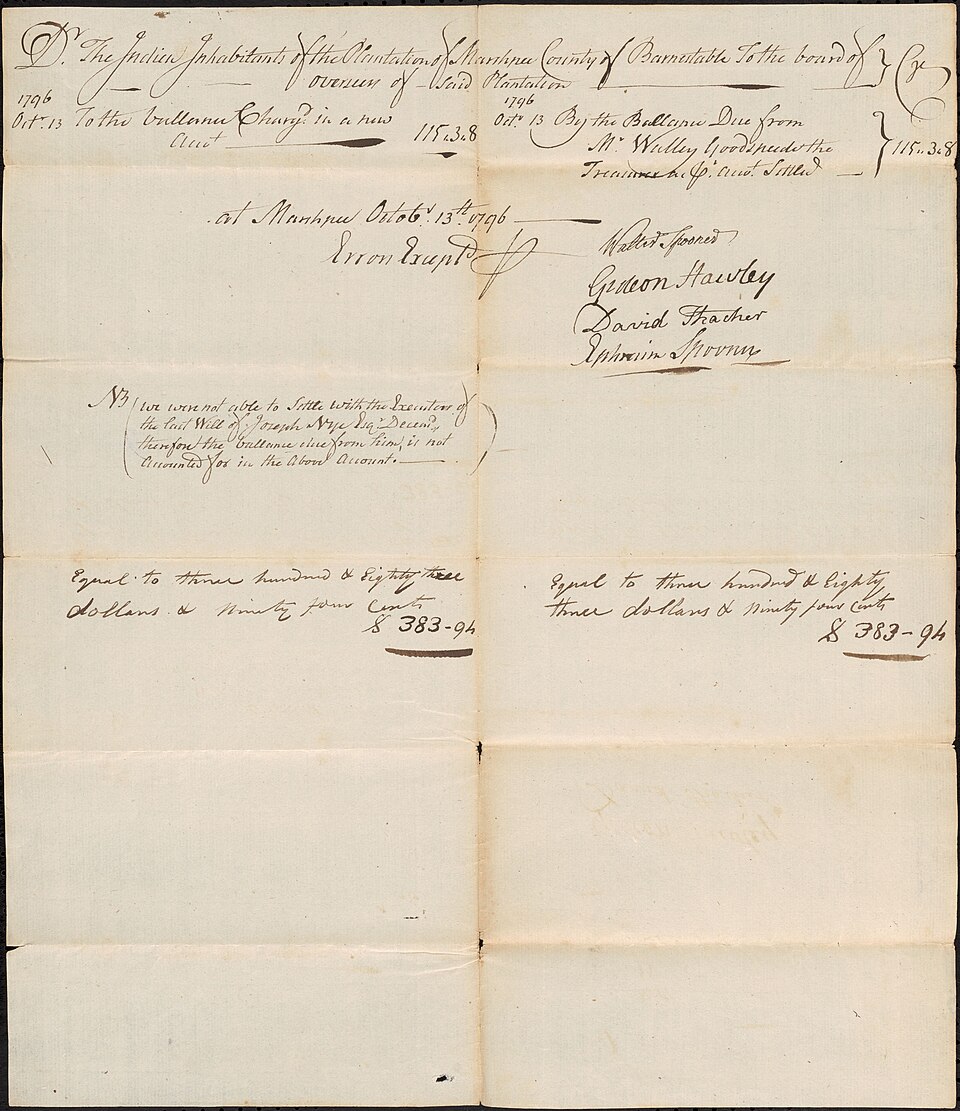 Dr. The Indian Inhabitants of the Plantation of Marshpee County of Barnstable To the board of Cr
overseers of Said Plantation
1796
Octr. 13 To the ballance Charg'd in a new
Acct 115..3..8
1796
Octr 13 By the Ballance Due from
Mr. Walley Goodspeed the
Treasurer as pr. acct. Settled 115..3..8
at Marshpee Octobr. 13th 1796
Errors Excepted
Walter Spooner
Gideon Hawley
David Thacher
Ephraim Spooner
NB (we were not able to Settle with the Executors of
the last Will of Joseph Nye Esqr. Deceasd,
therefore the ballance due from him, is not
accounted for in the Above Account.)
Equal to three hundred & Eighty three
dollars & Ninety four Cents
$ 383-94
Equal to three hundred & Eighty
three dollars & Ninety four Cents
$ 383-94